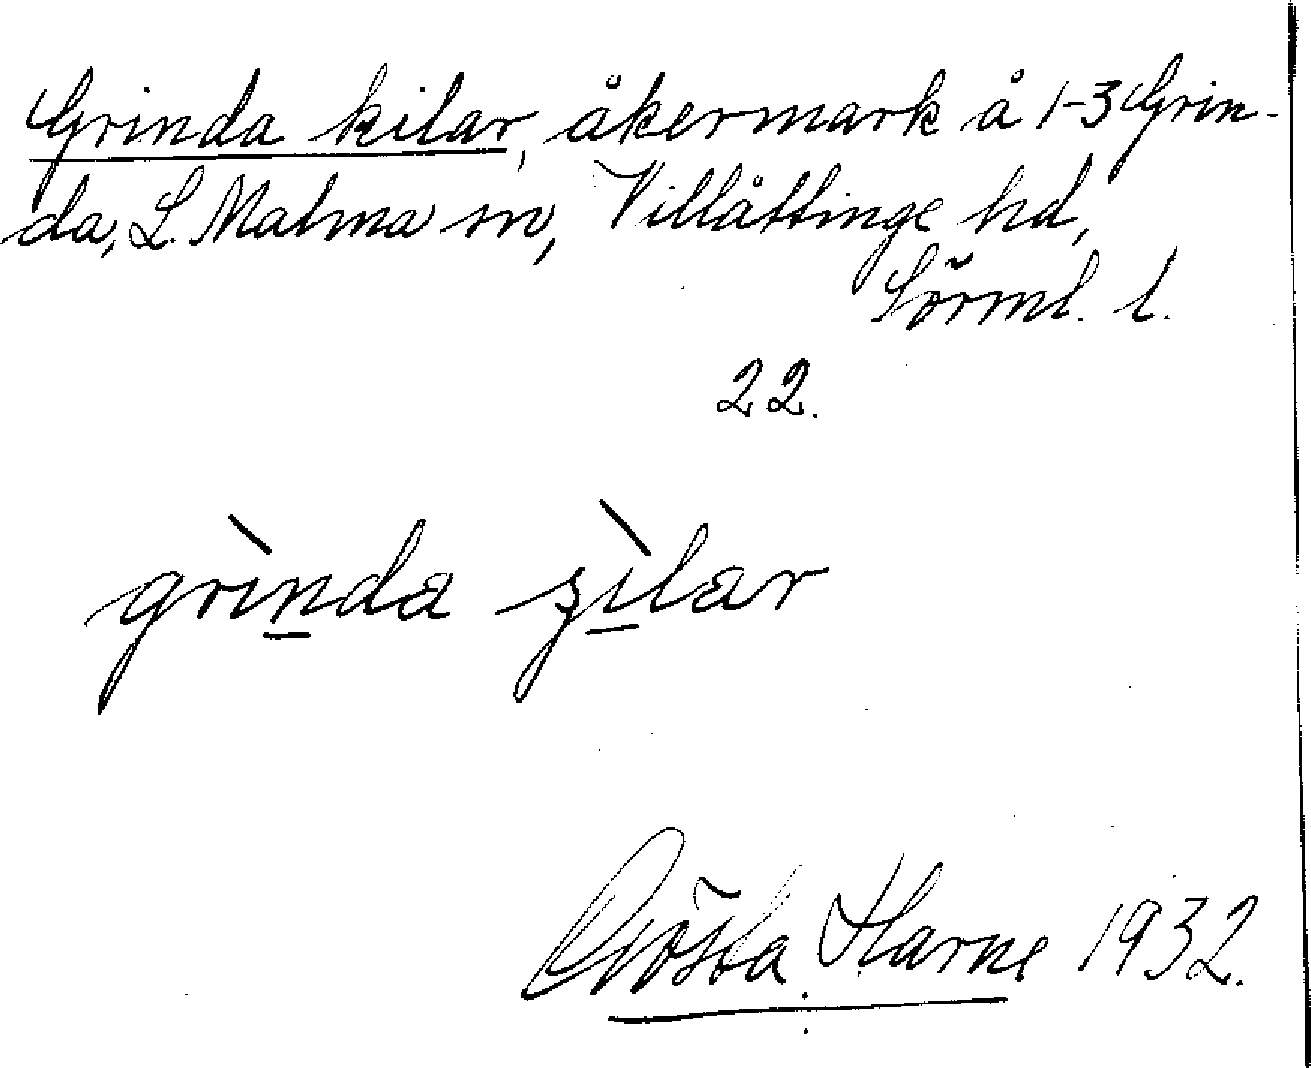 Grinda kilar, åkermark å 1-3 Grin-
da, L. Malma sn, Villåttinge hd,
Sörml. l.
22.
grìnda ʂìlar
Gösta Harne 1932.